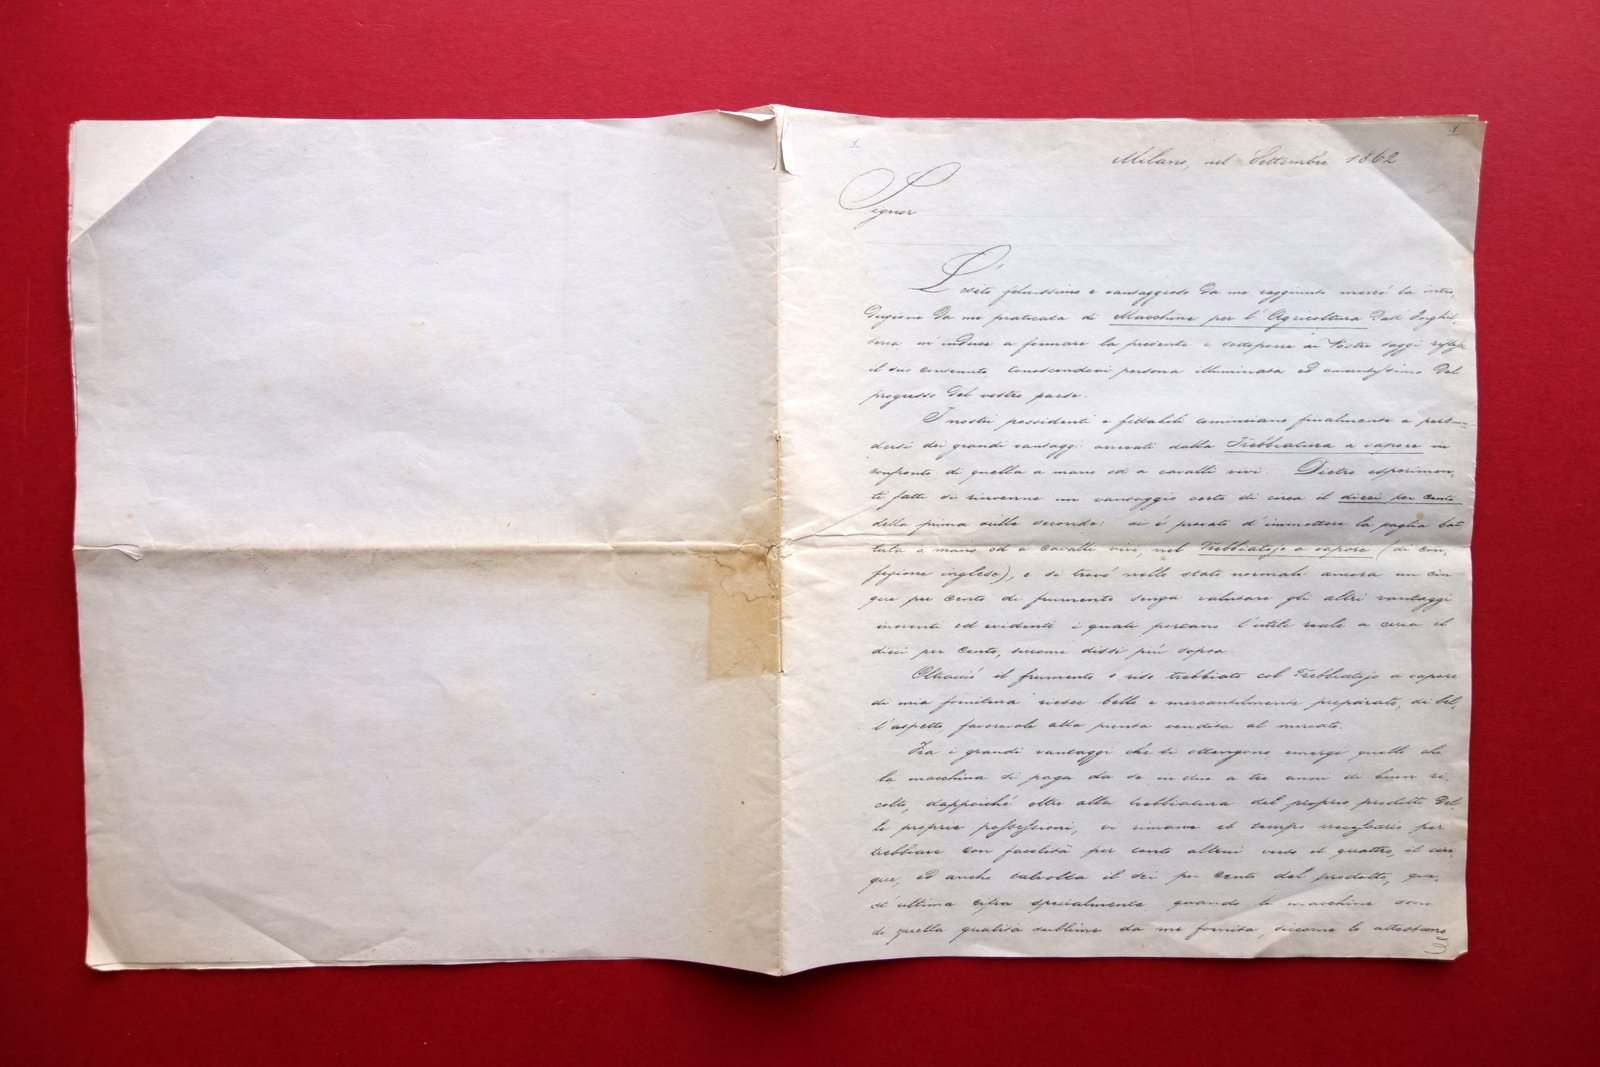 1
1
Milano, nel Settembre 1862
Signor
L'esito felicissimo e vantaggioso da me raggiunto mercé la intro-
duzione da me praticata di Macchine per l'Agricoltura dall'Inghil-
terra m'induce a formare la presente e sottoporre ai Vostri saggi riflessi
il suo contenuto, conoscendovi persona illuminata ed amantissima del
progresso del vostro paese.
I nostri possidenti e fittabili cominciano finalmente a persua-
dersi dei grandi vantaggi arrecati dalla Trebbiatura a vapore in
confronto di quella a mano od a cavalli vivi. Dietro esperimen-
ti fatti si rinvenne un vantaggio certo di circa il dieci per cento
della prima sulle seconde: si è provato d'immettere la paglia bat-
tuta a mano od a cavalli vivi, nel Trebbiatojo a vapore (di con-
fezione inglese), e si trovò nello stato normale ancora un cin-
que per cento di frumento senza valutare gli altri vantaggi
inerenti ed evidenti i quali portano l'utile reale a circa il
dieci per cento, siccome dissi più sopra.
Oltracciò il frumento e riso trebbiato col Trebbiatojo a vapore
di mia fornitura riesce bello e mercantilmente preparato, di bel-
l'aspetto favorevole alla pronta vendita al mercato.
Fra i grandi vantaggi che si ottengono, emerge quello che
la macchina si paga da se in due a tre anni di buon ri-
colto, dappoiché oltre alla trebbiatura del proprio prodotto del-
le proprie possessioni, vi rimane il tempo necessario per
trebbiare con facilità per conto altrui verso il quattro, il cin-
que, ed anche talvolta il sei per cento del prodotto, que-
st'ultima cifra specialmente quando le macchine sono
di quella qualità sublime da me fornita, siccome lo attestano